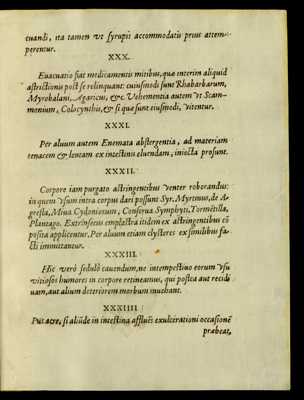 tuandi, ita tamen vt syrupis accommodatis prius attem-
perentur.
XXX.
Euacuatio fiat medicamentis mitibus, quæ interim aliquid
astrictionis post se relinquant: cuiusmodi sunt Rhabarbarum,
Myrobalani, Agaricus, &c. Vehementia autem vt Scam-
monium, Colocynthis, & si quæ sunt eiusmodi, vitentur.
XXXI.
Per aluum autem Enemata abstergentia, ad materiam
tenacem & lentam ex intestinis eluendam, iniecta prosunt.
XXXII.
Corpore iam purgato astringentibus venter roborandus:
in quem vsum intra corpus dari possunt Syr. Myrtinus, de A-
gresta, Miua Cydoniorum, Conserua Symphyti, Tormētilla,
Plantago. Extrinsecus emplastra itidem ex astringentibus cō
posita applicentur. Per aluum etiam clysteres ex similibus fa-
cti immittantur.
XXXIII.
Hic verò sedulò cauendum, ne intempestiuo eorum vsu
vitiosos humores in corpore retineamus, qui postea aut recidi
uam, aut alium deteriorem morbum inuehant.
XXXIIII.
Pus acre, si aliūde in intestina affluēs exulcerationi occasionē
præbeat,